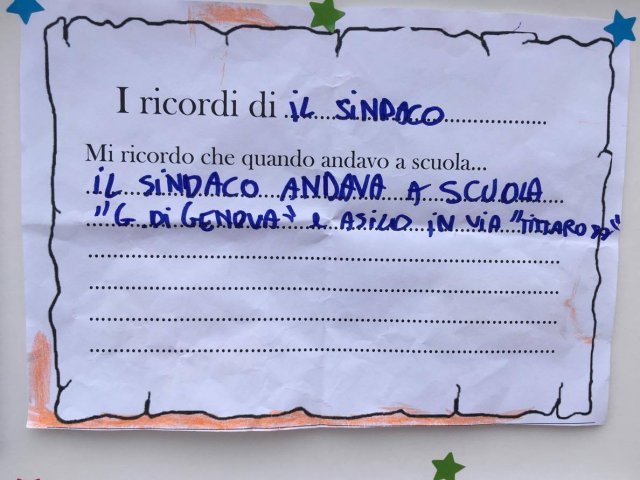 I ricordi di IL SINDACO
Mi ricordo che quando andavo a scuola...
IL SINDACO ANDAVA A SCUOLA
"G DI GENOVA" e ASILO IN VIA